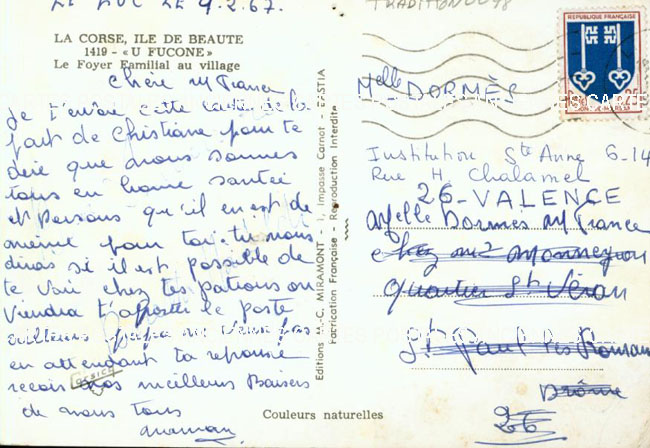 LE LUC LE 9.2.67.
TRADITION 
LA CORSE, ILE DE BEAUTE
1419 - «U FUCONE»
Le Foyer Familial au village
chère M France
Je t'envoie cette carte de la
part de Christiane pour te
dire que nous sommes
tous en bonne santée
et Pensons qu'il en est de
meme pour toi tu nous
diras si il est possible de
te voir chez tes patrons on
viendra t'apporter le poste
ailleurs papa
en attendant ta reponse
recois nos meilleurs Baisers
de nous tous
maman
corsica
Editions M.-C. MIRAMONT - 1, Impasse Carnot - BASTIA
Fabrication Française - Reproduction Interdite
Couleurs naturelles
REPUBLIQUE FRANÇAISE
Melle DORMÈS
Institution Ste Anne 6-14
Rue H. Chalamel
26-VALENCE
Melle Dormès M France
chez mr Monneyron
quartier St Véran
St Paul les Romans
Drôme
26